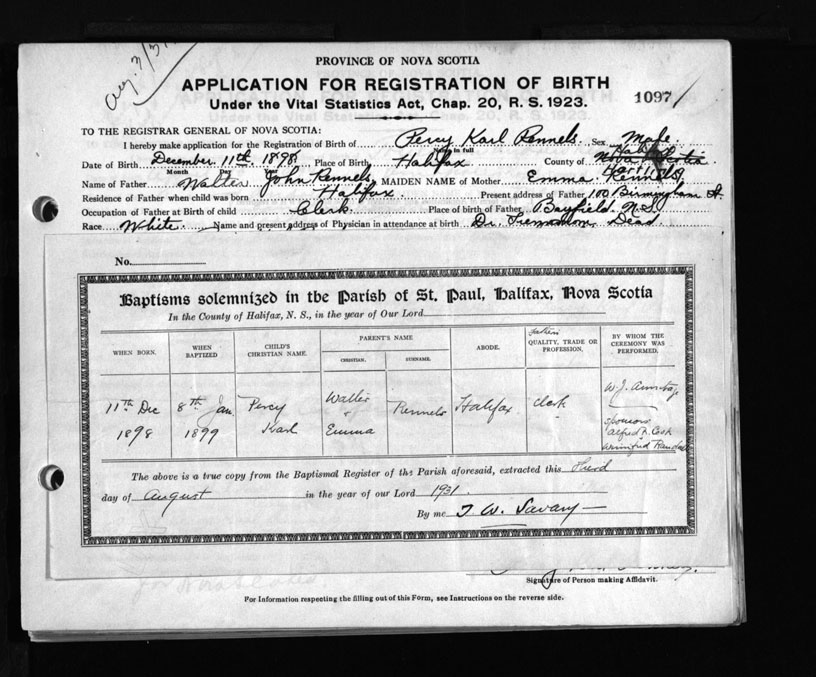 Aug. 3/31
PROVINCE OF NOVA SCOTIA
APPLICATION FOR REGISTRATION OF BIRTH
Under the Vital Statistics Act, Chap. 20, R. S. 1923.
1097
TO THE REGISTRAR GENERAL OF NOVA SCOTIA:
I hereby make application for the Registration of Birth of Percy Karl Rennels Sex Male
Name in full
Date of Birth December 11th 1898 Place of Birth Halifax County of Halifax Nova Scotia
Month Day
Name of Father Walter John Rennels MAIDEN NAME of Mother Emma
Residence of Father when child was born Halifax Present address of Father 100 Birmingham St
Occupation of Father at Birth of child Clerk Place of birth of Father Bayfield N.S.
Race White Name and present address of Physician in attendance at birth Dr. Dead
No.
Baptisms solemnized in the Parish of St. Paul, Halifax, Nova Scotia
In the County of Halifax, N. S., in the year of Our Lord
WHEN BORN.
WHEN BAPTIZED
CHILD'S CHRISTIAN NAME.
PARENT'S NAME
CHRISTIAN.
SURNAME.
ABODE.
QUALITY, TRADE OR PROFESSION.
BY WHOM THE CEREMONY WAS PERFORMED.
11th Dec 1898
8th Jan. 1899
Percy Karl
Walter + Emma
Rennels
Halifax
Clerk
W. J. Armitage
Sponsors
Alfred R. Cook
Winnifred
The above is a true copy from the Baptismal Register of the Parish aforesaid, extracted this Third
day of August in the year of our Lord 1931.
By me T. W. Savary
Signature of Person making Affidavit.
For Information respecting the filling out of this Form, see Instructions on the reverse side.